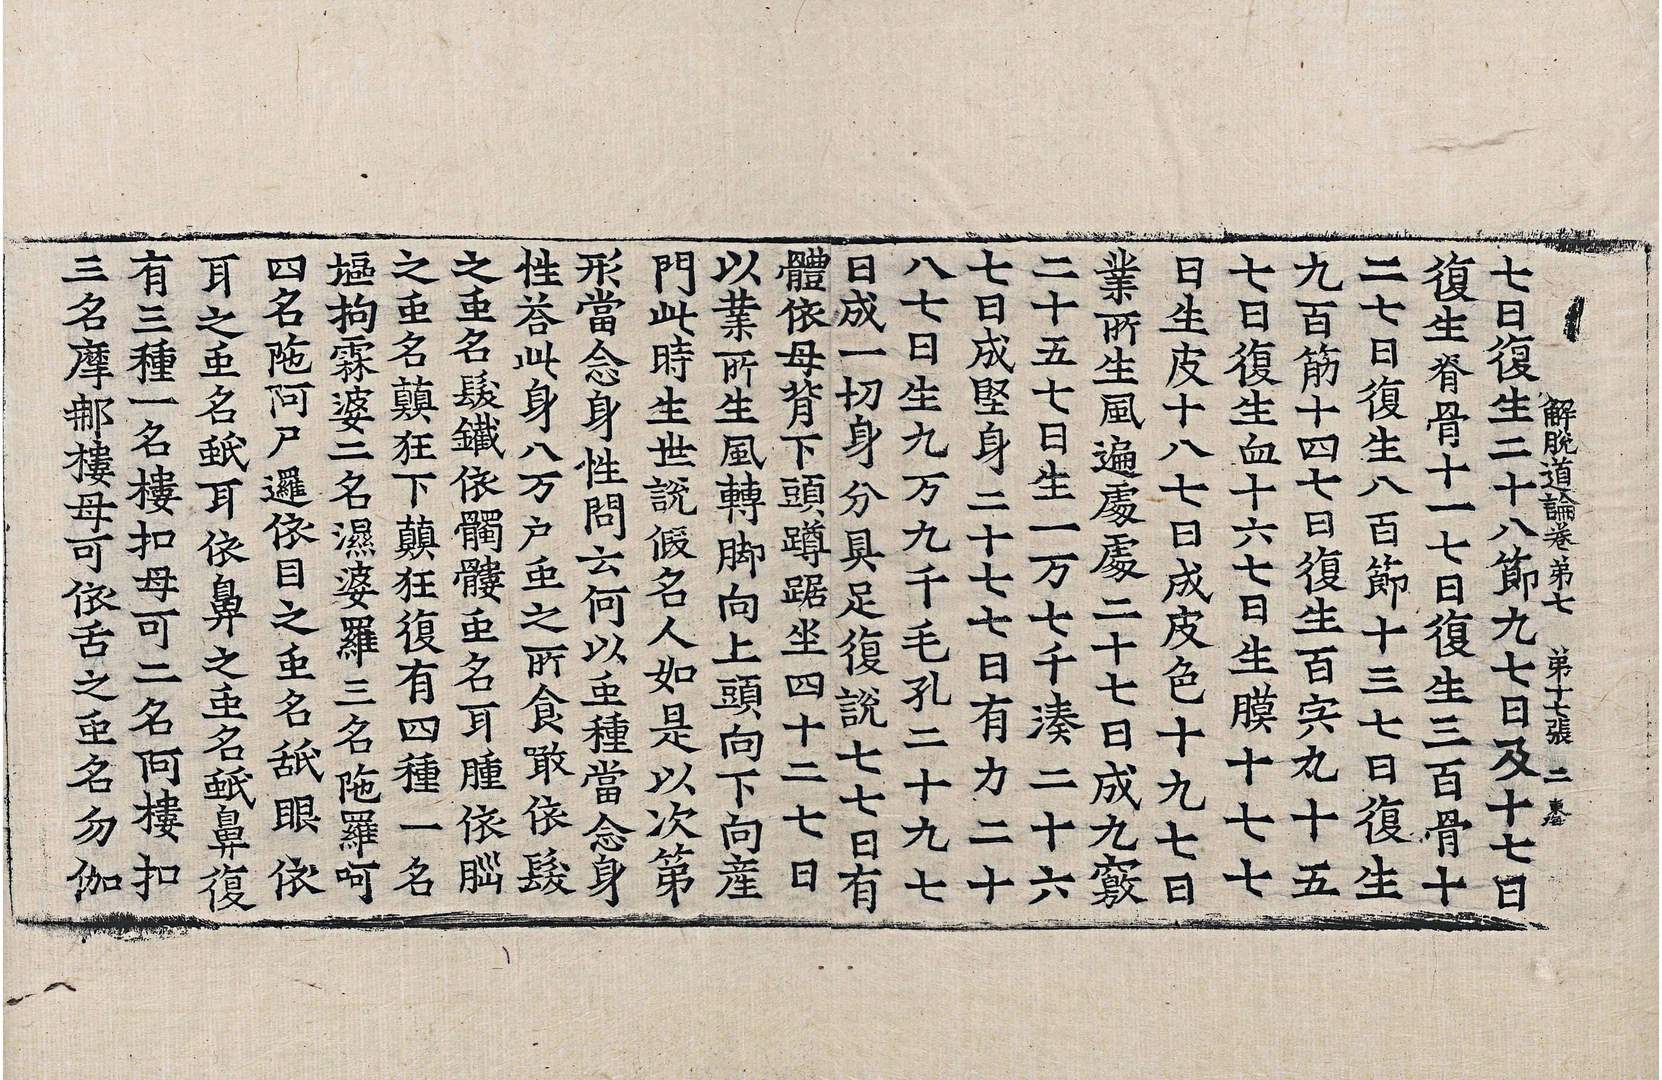 解脫道論卷第七　第十七張　二　東卷
七日復生二十八節九七日及十七日
復生脊骨十一七日復生三百骨十
二七日復生八百節十三七日復生
九百筋十四七日復生百宍丸十五
七日復生血十六七日生膜十七七
日生皮十八七日成皮色十九七日
業所生風遍處處二十七日成九竅
二十五七日生一万七千湊二十六
七日成堅身二十七七日有力二十
八七日生九万九千毛孔二十九七
日成一切身分具足復說七七日有
體依母背下頭蹲踞坐四十二七日
以業所生風轉脚向上頭向下向産
門此時生世說假名人如是以次第
形當念身性問云何以䖝種當念身
性荅此身八万户䖝之所食噉依髮
之䖝名髮鐵依髑髏䖝名耳腫依𦛁
之䖝名顛狂下顛狂復有四種一名
漚拘霖婆二名濕婆羅三名陁羅呵
四名陁阿尸邏依目之䖝名舐眼依
耳之䖝名舐耳依鼻之䖝名舐鼻復
有三種一名樓扣母可二名阿樓扣
三名摩𨚗樓母可依舌之䖝名勿伽